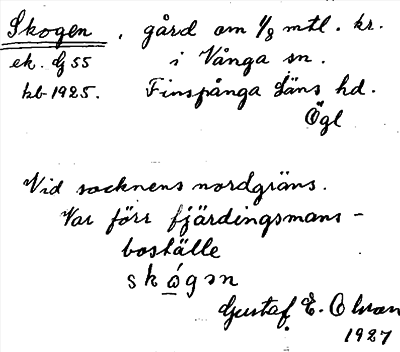 Skogen, gård om 1/8 mtl. kr.
ek. Dj 55 i Vånga sn.
kb 1925. Finspånga Läns hd.
Ögl
Vid socknens nordgräns.
Var förr fjärdingsmans-
boställe
skógən
Gustaf E. Olson
1927